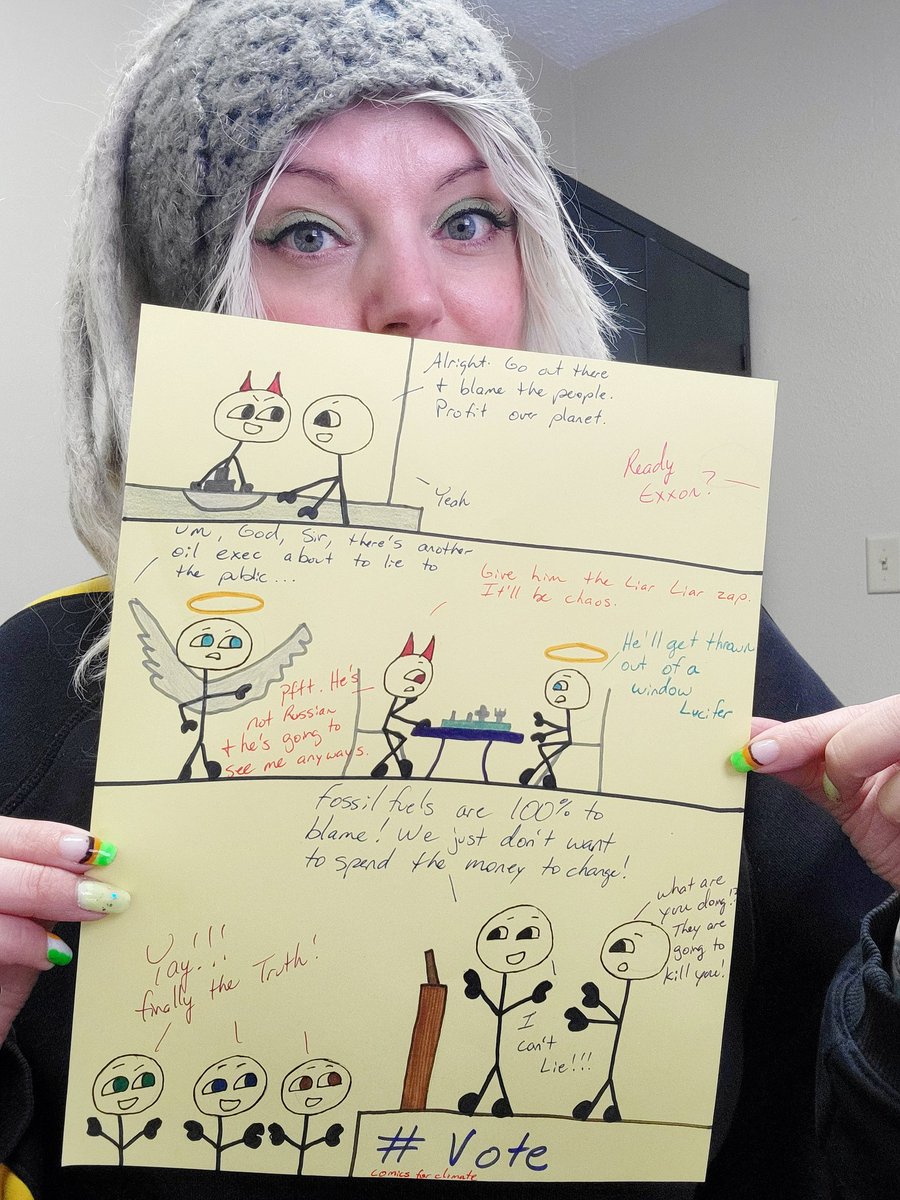 Alright. Go out there
+ blame the people.
Profit over planet.
Yeah
Ready
Exxon?
Um, God, Sir, there's another
oil exec about to lie to
the public...
Give him the Liar Liar zap.
It'll be chaos.
He'll get thrown
out of a
window
Lucifer
Pftt. He's
not Russian
+ he's going to
see me anyways.
Fossil fuels are 100% to
blame! We just don't want
to spend the money to change!
what are
you doing!?
They are
going to
kill you!
I
can't
Lie!!!
Yay!!!
finally the Truth!
# Vote
Comics for climate